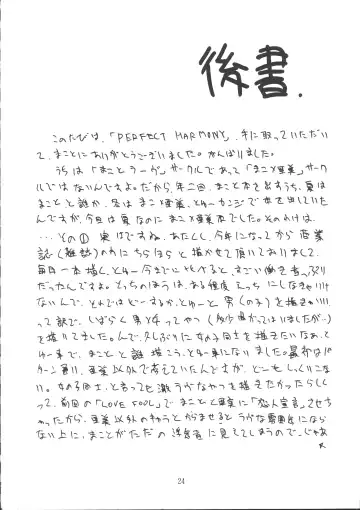 後書.
このたびは、「PERFECT HARMONY」手に取っていただい
て、まことにありがとうございました。がんばりました。
うちは「まことラーヴ」サークルであって「まこ×亜美」サーク
ルではないんですよ。だから、年二回、まこと本を出すうち、夏は
まことと誰か、冬は まこ×亜美、とゆーカンジで本を出していた
んですが、今回は夏なのに まこ×亜美本でした。そのわけは、
…その① 実はですね、あたくし、今年になってから 商業
誌(雑誌)の方に ちらほらと 描かせて頂いておりまして、
毎月一本描く、とゆー今までに すごい働きっぷり
だったんですよ。とっちのほうは、ある程度 Hっちにしなきゃいけ
ないんで、とゆーと 男(の子)を描きゃいい
って訳で、しばらく 男と女ってやつ
を描いてました。んで、久しぶりに女の子同士を描きたいなあ、と
ゆー事で、まことと 誰 描こう、とゆー事になりました。
ターン通り、亜美以外で考えていたんですが、どーも しっくりこな
い。女の子同士、と言っても 激ラヴなやつを描きたかったらしく
って、前回の「LOVE FOOL」で まことと亜美に「恋人宣言」させち
ゃったから、亜美以外のキャラと からませると ラヴな雰囲気になら
ない上に、まことがただの 浮気者に見えてしまうので…じゃあ
24